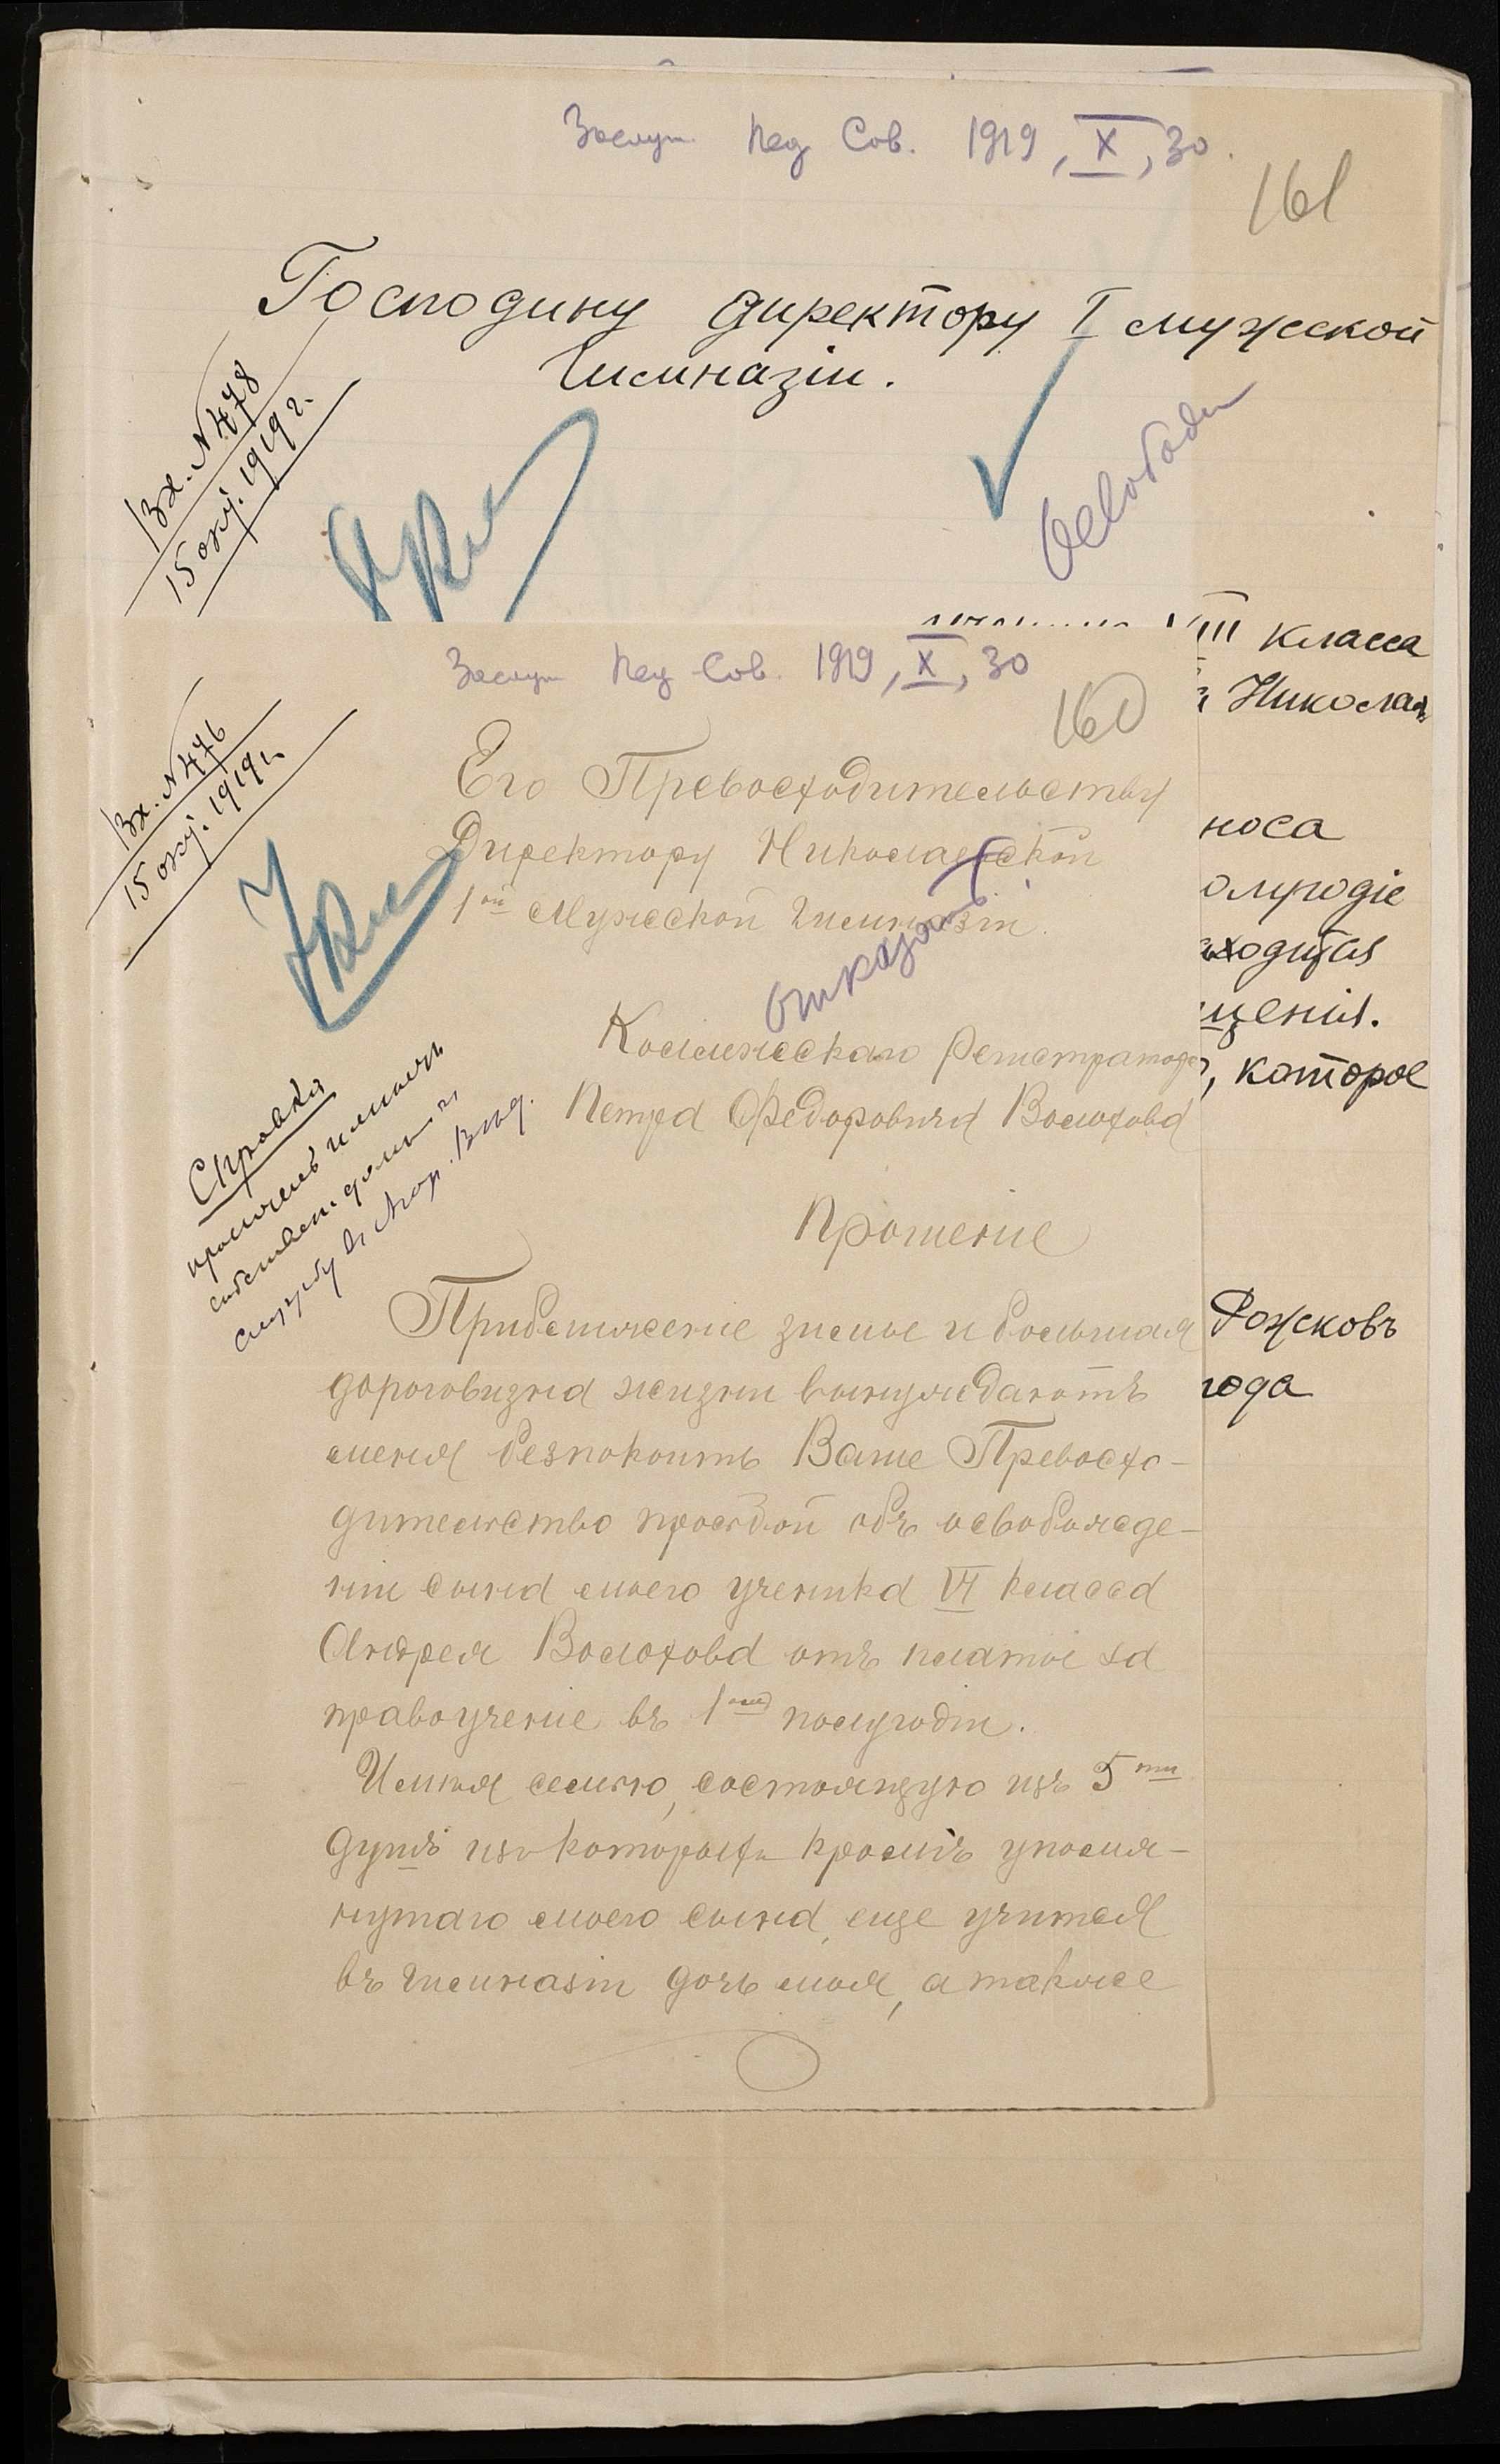 Заслуш. Пед Сов. 1919, X, 30.
161
Господину директору I мужской
гимназіи.
Вх. № 478
15 окт. 1919 г.
Освобод
VIII класса
Николая
носа
олугодіе
находится
щенія.
, которое
Рожковъ
года
Заслуш Пед Сов. 1919, X, 30
160
Вх. № 476
15 окт. 1919 г.
Его Превосходительству
Директору Николаевской
1ой Мужской Гимназіи.
отказать
Коллежскаго Регистратора
Петра Федоровича Волохова
Справка
службу въ
Прошеніе
Приближеніе зимы и большая
дороговизна жизни вынуждаютъ
меня безпокоить Ваше Превосхо-
дительство просьбой объ освобожде-
ніи сына моего ученика VI класса
Андрея Волохова отъ платы за
правоученіе въ 1омъ полугодіи.
Имѣя семью, состоящую изъ 5ти
душъ изъ которыхъ кромѣ упомя-
нутаго моего сына, еще учится
въ гимназіи дочь моя, а также